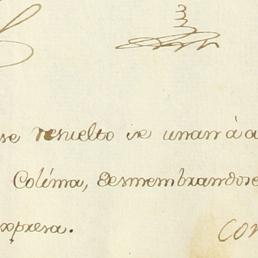 se resuelto se unan á a
Colima, desmembrandose
xpresa. con